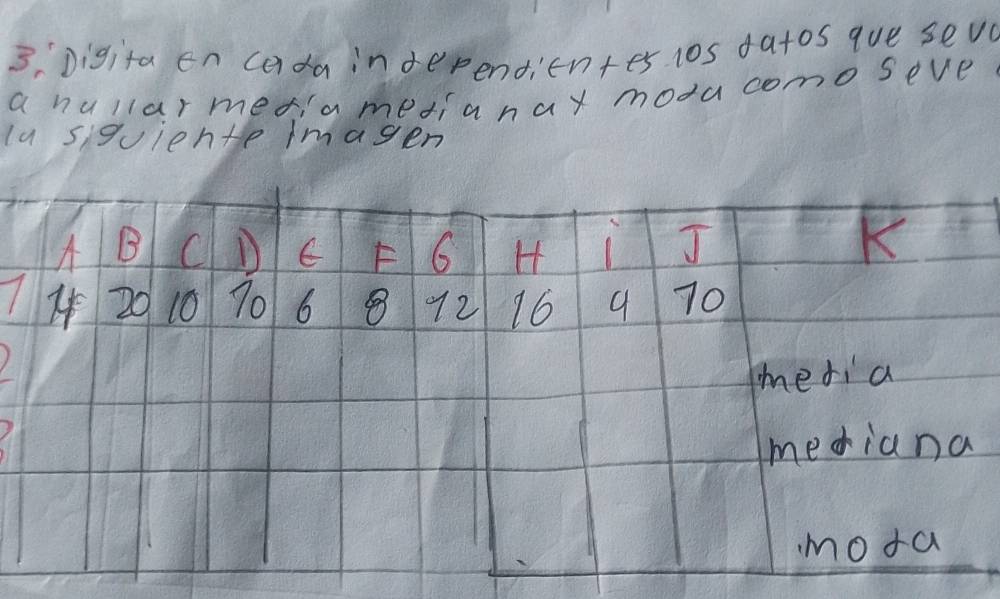 3. Digita en celda independientes los datos que se va
a hallar media mediana y moda como se ve
la siguiente imagen
A B C D E F G H i J K
1 20 10 10 6 8 12 16 4 10
2 media
3 mediana
moda